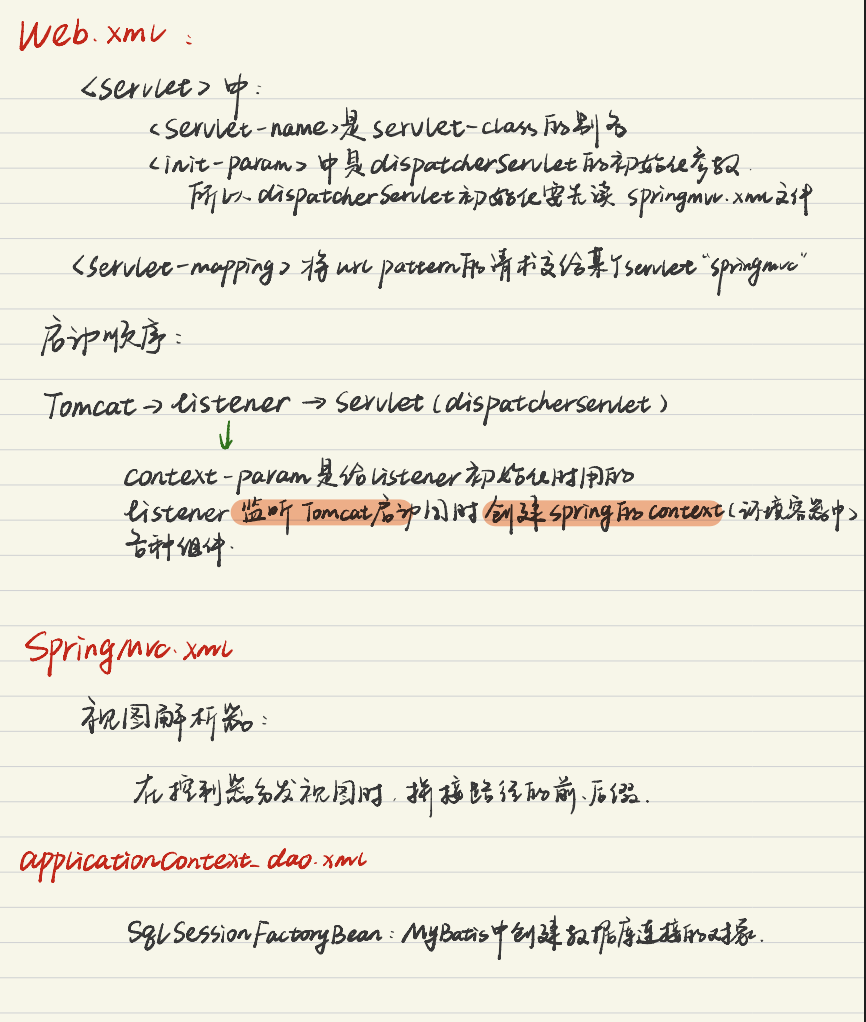 Web.xml：
<servlet> 中：
<servlet-name>是 servlet-class 的别名
<init-param> 中是 dispatcherServlet 的初始化参数.
所以 dispatcherServlet 初始化需先读 springmvc.xml 文件
<servlet-mapping> 将 url pattern 的请求交给某个servlet "springmvc"
启动顺序：
Tomcat → listener → Servlet (dispatcherServlet)
↓
context-param 是给 listener 初始化时用的
listener 监听 Tomcat 启动同时创建 spring 的 context (环境容器中)
各种组件.
SpringMvc.xml
视图解析器：
在控制器分发视图时, 拼接路径的前、后缀.
applicationContext_dao.xml
SqlSessionFactoryBean: MyBatis中创建数据库连接的对象.